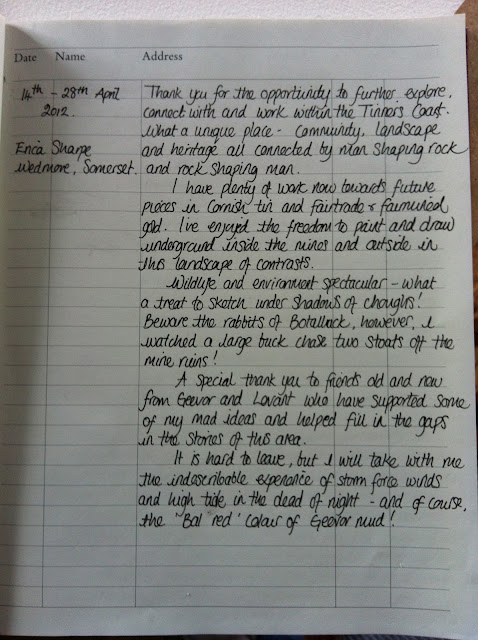 Date Name Address
14th - 28th April
2012.
Erica Sharpe
Wedmore, Somerset.
Thank you for the opportunity to further explore,
connect with and work within the Tinners Coast.
What a unique place - community, landscape
and heritage all connected by man shaping rock
and rock shaping man.
I have plenty of work now towards future
pieces in Cornish tin and fairtrade & fairmined
gold. I've enjoyed the freedom to paint and draw
underground inside the mines and outside in
this landscape of contrasts.
Wildlife and environment spectacular - what
a treat to sketch under shadows of choughs!
Beware the rabbits of Botallack, however, I
watched a large buck chase two stoats off the
mine ruins!
A special thank you to friends old and new
from Geevor and Levant who have supported some
of my mad ideas and helped fill in the gaps
in the stories of this area.
It is hard to leave, but I will take with me
the indescribable experience of storm force winds
and high tide in the dead of night - and of course,
the "Bal "red' colour of Geevor mud!